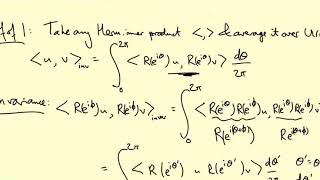 of 1: Take any Herm. inner product <,> & average it over U
<u, v>_inv = ∫_0^{2π} <R(e^{iθ})u, R(e^{iθ})v> dθ/2π
nvariance: <R(e^{iφ})u, R(e^{iφ})v>_inv = ∫_0^{2π} <R(e^{iθ})R(e^{iφ})u, R(e^{iθ})R(e^{iφ})v
R(e^{i(θ+φ)}) R(e^{i(θ+φ)})
= ∫_0^{2π} <R(e^{iθ'})u R(e^{iθ'})v> dθ'/2π θ' = θ